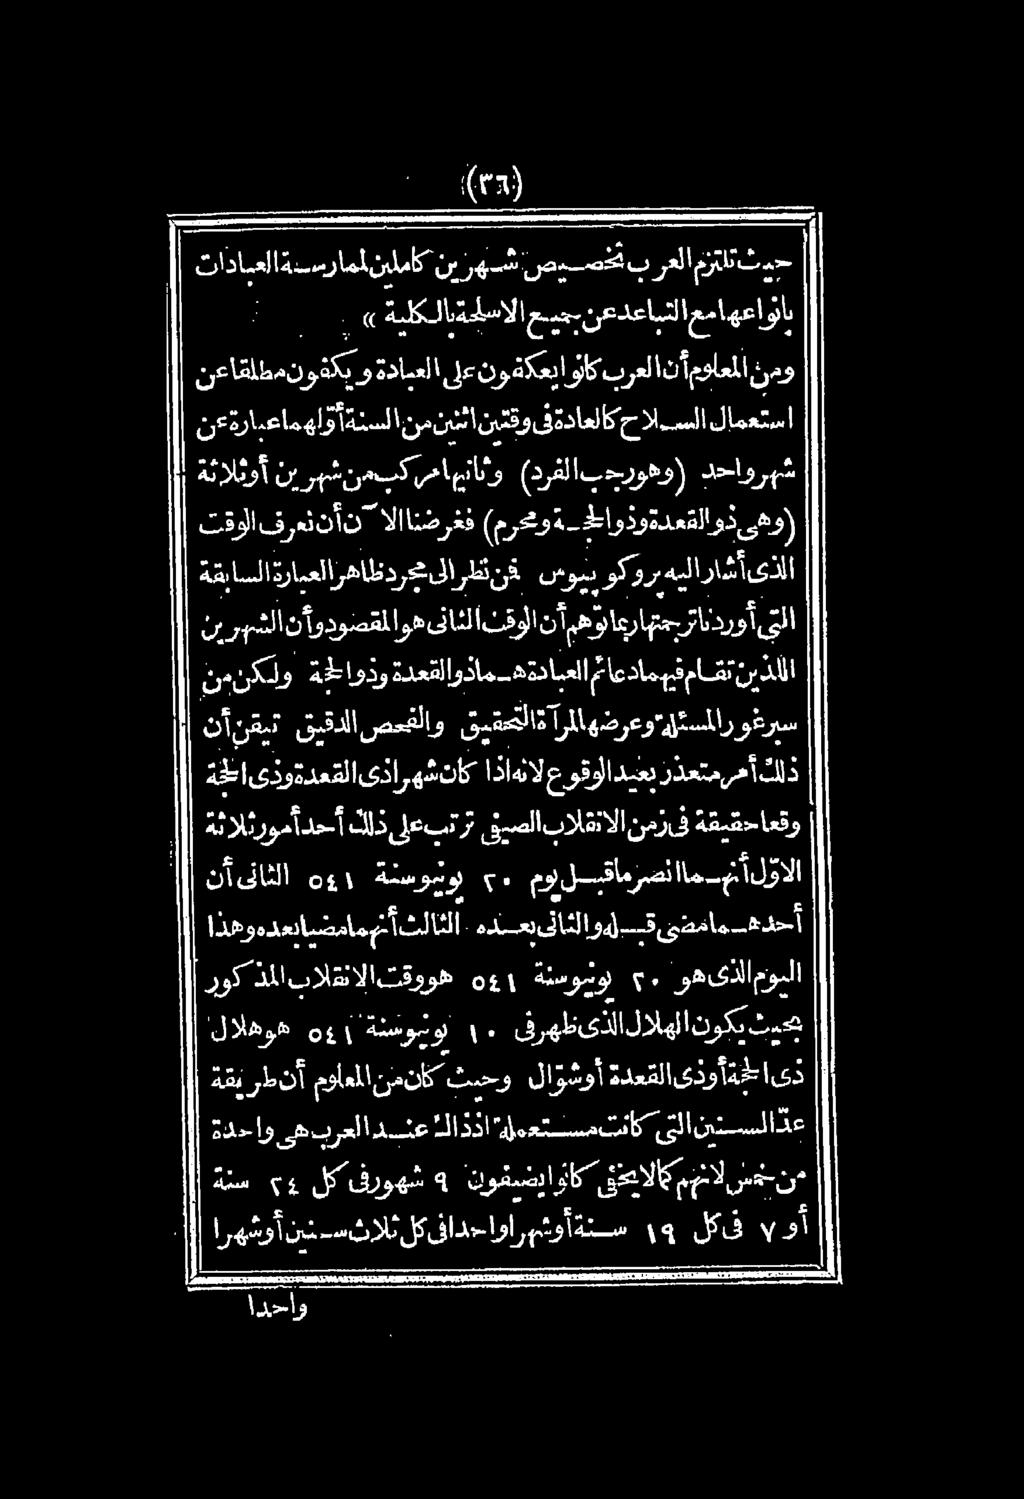 (٣٦)
حيث تلتزم العرب تخصيص شهرين كاملين لممارسة العبادات
بانواعها مع التباعد عن جميع الاسلحة بالكلية »
ومن المعلوم أن العرب كانوا يعكفون على العبادة ويكفون مطلقا عن
استعمال السلاح كالعادة فى وقتين اثنين من السنة أولهما عبارة عن
شهر واحد (وهو رجب الفرد) وثانيها مركب من شهرين أو ثلاثة
(وهى ذو القعدة وذو الحجة ومحرم) فغرضنا الآن أن نعرف الوقت
الذى أشار اليه بروكوبيوس فمن نظر الى مجرد ظاهر العبارة السابقة
التى أوردنا ترجمتها ربما توهم أن الوقت الثانى هو المقصود وأن الشهرين
اللذين تقام فيهما دعائم العبادة هما ذو القعدة وذو الحجة ولكن من
سبر غور المسئلة وعرضها لمرآة التحقيق والفحص الدقيق تيقن أن
ذلك أمر متعذر بعيد الوقوع لانه اذا كان شهرا ذى القعدة وذى الحجة
وقعا حقيقة فى زمن الانقلاب الصيفى ترتب على ذلك أحد أمور ثلاثة
الاول أنهما انصرما قبل يوم ٢٠ يونيو سنة ٥٤١ الثانى أن
أحدهما مضى قبله والثانى بعده الثالث أنهما مضيا بعده وهذا
اليوم الذى هو ٢٠ يونيو سنة ٥٤١ هو وقت الانقلاب المذكور
بحيث يكون الهلال الذى ظهر فى ١٠ يونيو سنة ٥٤١ هو هلال
ذى الحجة أو ذى القعدة أو شوال وحيث كان من المعلوم أن طريقة
عد السنين التى كانت مستعملة اذ ذاك عند العرب هى واحدة
من خمس لانهم كما لا يخفى كانوا يضيفون ٩ شهور فى كل ٢٤ سنة
أو ٧ فى كل ١٩ سنة أو شهرا واحدا فى كل ثلاث سنين أو شهرا
واحدا